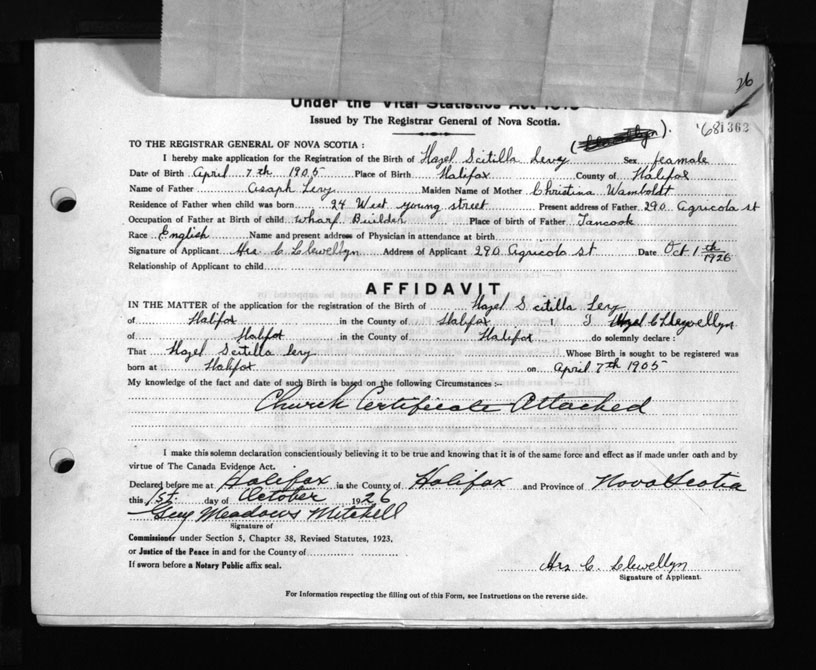 26
Under the Vital Statistics Act 1919
Issued by The Registrar General of Nova Scotia.
(Llewellyn). 681362
TO THE REGISTRAR GENERAL OF NOVA SCOTIA :
I hereby make application for the Registration of the Birth of Hazel Scitilla Levy Sex feamale
Date of Birth April 7th 1905 Place of Birth Halifax County of Halifax
Name of Father Asaph Levy Maiden Name of Mother Christina Wamboldt
Residence of Father when child was born 24 West young street Present address of Father 290 Agricola st
Occupation of Father at Birth of child Wharf Builder Place of birth of Father Tancook
Race English Name and present address of Physician in attendance at birth
Signature of Applicant Mrs C Llewellyn Address of Applicant 290 Agricola st Date Oct 1th 1926
Relationship of Applicant to child
AFFIDAVIT
IN THE MATTER of the application for the registration of the Birth of Hazel Scitilla Levy
of Halifax in the County of Halifax I, I Hazel C Llewellyn
of Halifax in the County of Halifax do solemnly declare :
That Hazel Scitilla Levy Whose Birth is sought to be registered was
born at Halifax on April 7th 1905
My knowledge of the fact and date of such Birth is based on the following Circumstances :-
Church Certificate Attached
I make this solemn declaration conscientiously believing it to be true and knowing that it is of the same force and effect as if made under oath and by
virtue of The Canada Evidence Act.
Declared before me at Halifax in the County of Halifax and Province of Nova Scotia
this 1st. day of October 1926
Guy Meadows Mitchell
Signature of
Commissioner under Section 5, Chapter 38, Revised Statutes, 1923,
or Justice of the Peace in and for the County of
If sworn before a Notary Public affix seal.
Mrs C. Llewellyn
Signature of Applicant.
For Information respecting the filling out of this Form, see Instructions on the reverse side.